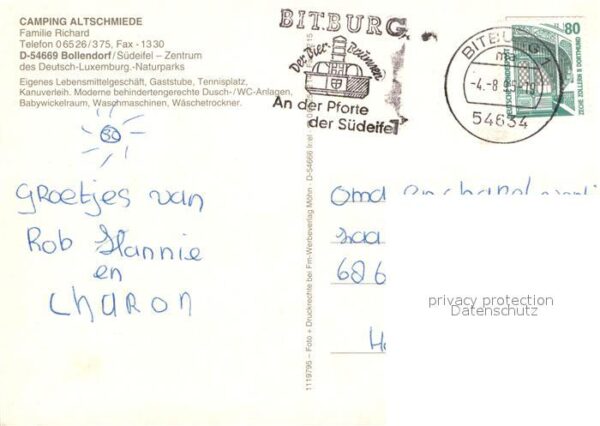 CAMPING ALTSCHMIEDE
Familie Richard
Telefon 06526/375, Fax - 1330
D-54669 Bollendorf/Südeifel – Zentrum
des Deutsch-Luxemburg.-Naturparks
Eigenes Lebensmittelgeschäft, Gaststube, Tennisplatz,
Kanuverleih. Moderne behindertengerechte Dusch-/WC-Anlagen,
Babywickelraum, Waschmaschinen, Wäschetrockner.
30
Groetjes van
Rob Hannie
en
Charon
1119795 – Foto + Druckrechte bei Fm-Werbeverlag Möhn D-54666 Irrel
BITBURG
Der Bier-Brunnen
An der Pforte
der Südeifel
BITBURG 1
54634
80
DEUTSCHE BUNDESPOST
ZECHE ZOLLERN II DORTMUND
Oma
686
privacy protection
Datenschutz